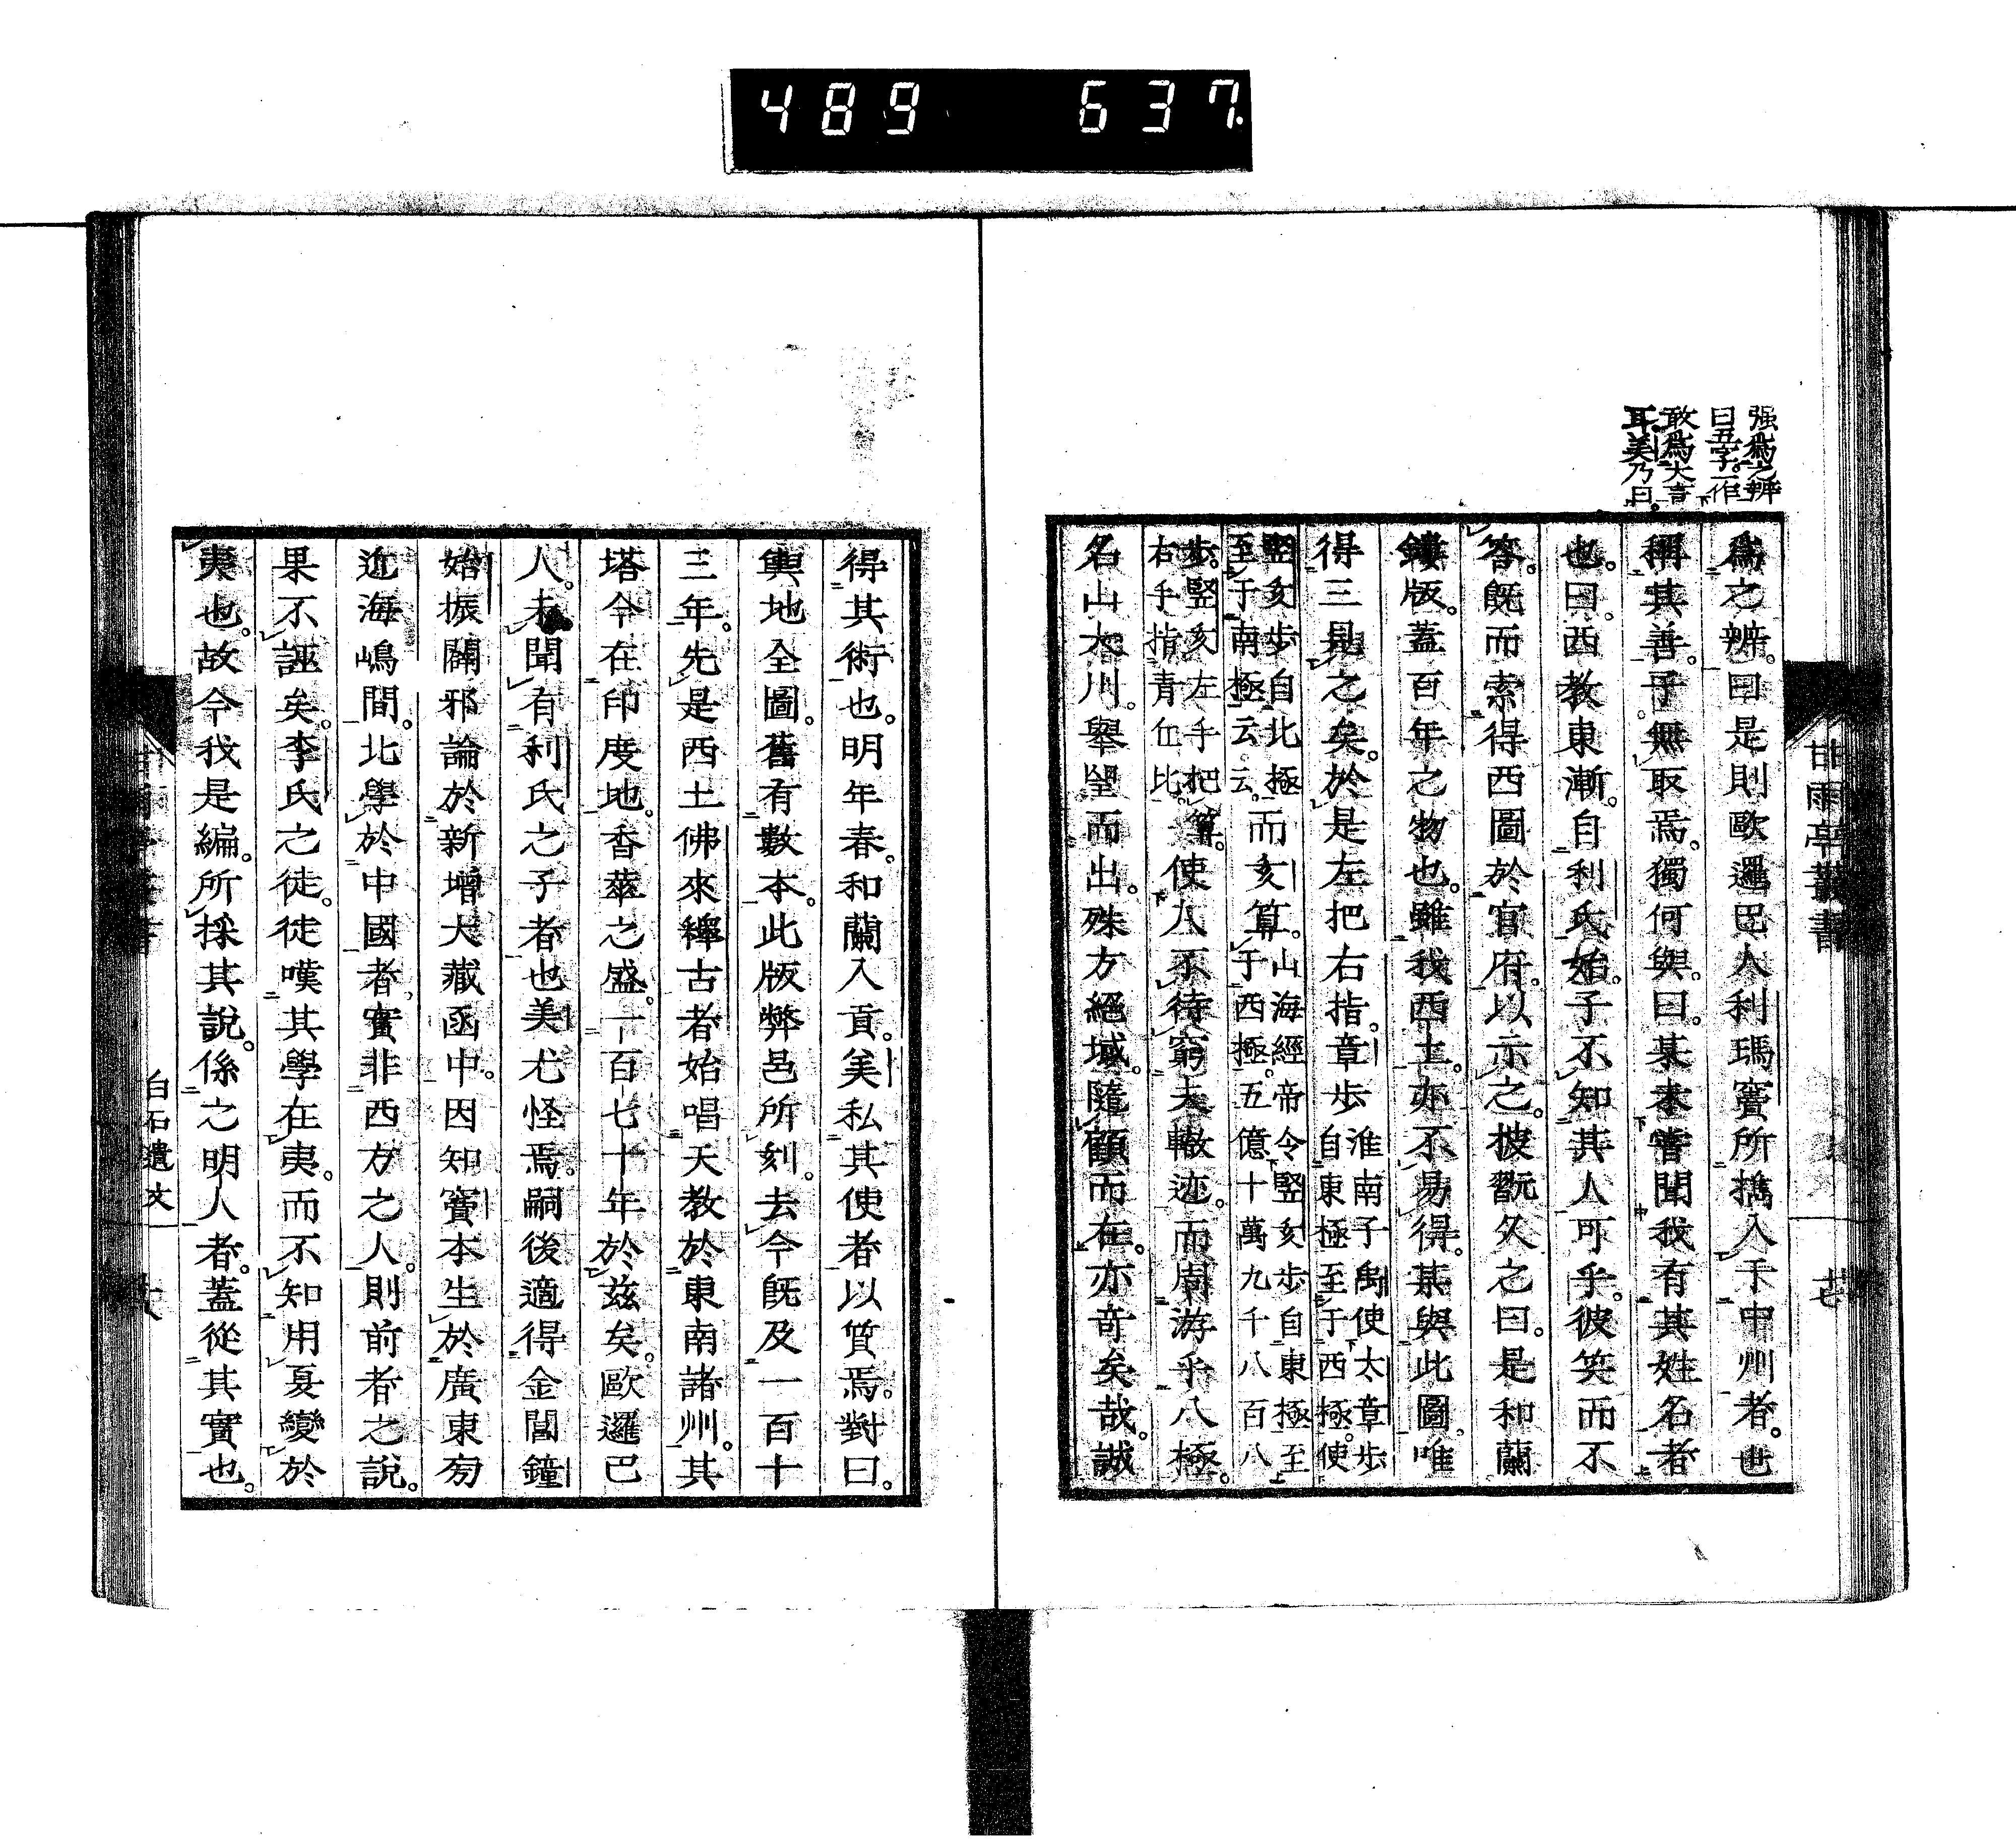 489 637.
强爲之辨
曰五字一作
敢爲大言
耳美乃曰
甘雨亭叢書
廿七
爲之辨。曰是則歐邏巴人利瑪竇所撝入于中州者。世
稱其善。乎無取焉。獨何與。曰。某未嘗聞我有其姓名者
也。曰。西教東漸。自利氏始。子不知其人可乎。彼笑而不
答。既而索得西圖於官府。以示之。披翫久之曰。是和蘭
鏤版。蓋百年之物也。雖我西土。亦不易得。某與此圖。唯
得三見之矣。於是左把右指。章步淮南子禹使太章步自東極至于西極。使
豎亥步自北極至于南極云云。而亥算。山海經帝令豎亥步自東極至于西極。五億十萬九千八百八
步。豎亥左手把算。右手指青丘比。使人不待窮夫轍迹。而周游乎八極。
名山大川。舉望而出。殊方絕域。隨顧而在。亦奇矣哉。誠
得其術也。明年春。和蘭入貢。美私其使者以質焉。對曰。
輿地全圖。舊有數本。此版弊邑所刻。去今既及一百十
三年。先是西土佛來釋古者始唱天教於東南諸州。其
塔今在印度地。香華之盛。一百七十年於茲矣。歐邏巴
人。未聞有利氏之子者也美尤怪焉。嗣後適得金閶鐘
始振闢邪論於新增大藏函中。因知竇本生於廣東旁
近海嶋間。北學於中國者。實非西方之人。則前者之說。
果不誣矣。李氏之徒。徒嘆其學在夷。而不知用夏變於
夷也。故今我是編。所採其說。係之明人者。蓋從其實也。
白石遺文